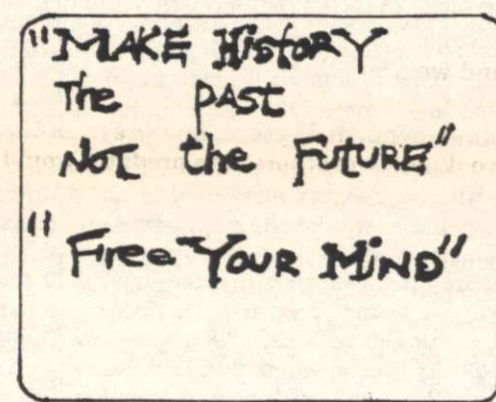 "MAKE HistorY
The PAST
NOT the FUTURE"
"Free YOUR MIND"